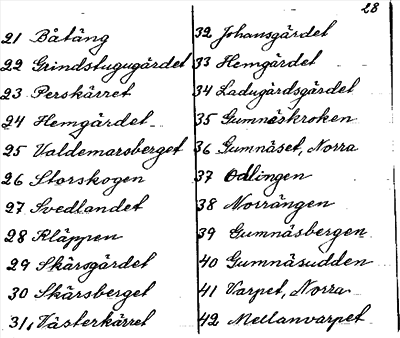 28
21 Båtäng
22 Grindstugugärdet
23 Perskärret
24 Hemgärdet
25 Valdemarsberget
26 Storskogen
27 Svedlandet
28 Kläppen
29 Skärsgärdet
30 Skärsberget
31, Västerkärret
32 Johansgärdet
33 Hemgärdet
34 Ladugårdsgärdet
35 Gumnäskroken
36 Gumnäset, Norra
37 Odlingen
38 Norrängen
39 Gumnäsbergen
40 Gumnäsudden
41 Varpet, Norra
42 Mellanvarpet